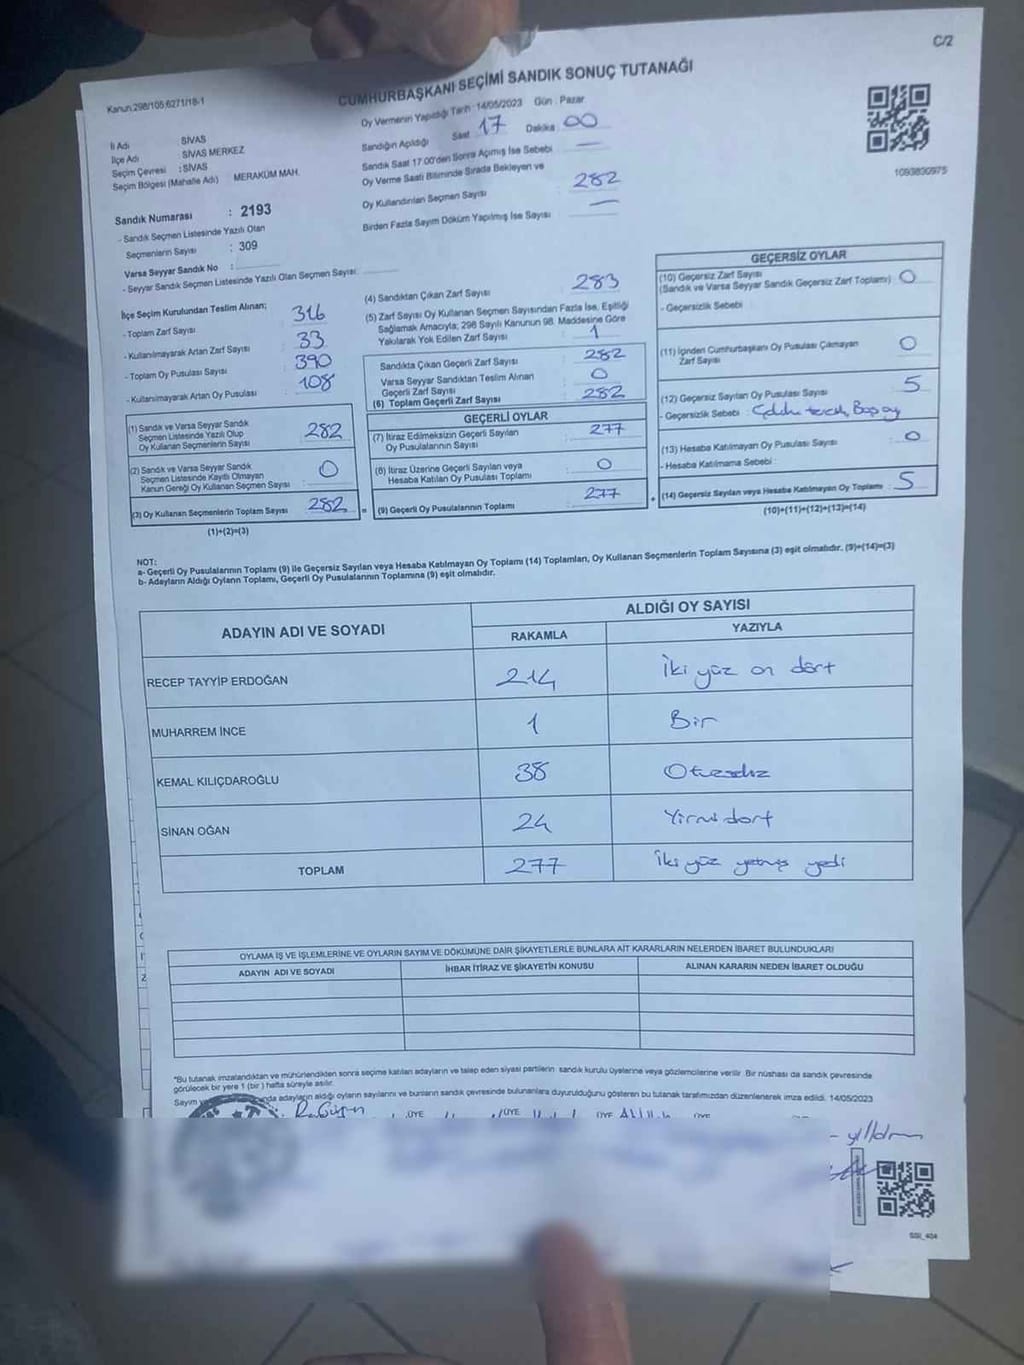 C/2
Kanun 298/105 6271/18-1
CUMHURBAŞKANI SEÇİMİ SANDIK SONUÇ TUTANAĞI
İl Adı SİVAS
İlçe Adı SİVAS MERKEZ
Seçim Çevresi : SİVAS
Seçim Bölgesi (Mahalle Adı) MERAKÜM MAH.
Sandık Numarası : 2193
- Sandık Seçmen Listesinde Yazılı Olan
Seçmenlerin Sayısı : 309
Varsa Seyyar Sandık No :
- Seyyar Sandık Seçmen Listesinde Yazılı Olan Seçmen Sayısı:
Oy Vermenin Yapıldığı Tarih : 14/05/2023 Gün : Pazar
Sandığın Açıldığı Saat 17 Dakika 00
Sandık Saat 17.00'den Sonra Açımış İse Sebebi —
Oy Verme Saati Bitiminde Sırada Bekleyen ve
Oy Kullandırılan Seçmen Sayısı 282
Birden Fazla Sayım Döküm Yapılmış İse Sayısı —
1093830975
İlçe Seçim Kurulundan Teslim Alınan;
- Toplam Zarf Sayısı 316
- Kullanılmayarak Artan Zarf Sayısı 33
- Toplam Oy Pusulası Sayısı 390
- Kullanılmayarak Artan Oy Pusulası 108
(1) Sandık ve Varsa Seyyar Sandık
Seçmen Listesinde Yazılı Olup
Oy Kullanan Seçmenlerin Sayısı 282
(2) Sandık ve Varsa Seyyar Sandık
Seçmen Listesinde Kayıtlı Olmayan
Kanun Gereği Oy Kullanan Seçmen Sayısı 0
(3) Oy Kullanan Seçmenlerin Toplam Sayısı 282
(1)+(2)=(3)
(4) Sandıktan Çıkan Zarf Sayısı 283
(5) Zarf Sayısı Oy Kullanan Seçmen Sayısından Fazla İse, Eşitliği
Sağlamak Amacıyla; 298 Sayılı Kanunun 98. Maddesine Göre
Yakılarak Yok Edilen Zarf Sayısı : 1
Sandıkta Çıkan Geçerli Zarf Sayısı : 282
Varsa Seyyar Sandıktan Teslim Alınan
Geçerli Zarf Sayısı : 0
(6) Toplam Geçerli Zarf Sayısı : 282
GEÇERLİ OYLAR
(7) İtiraz Edilmeksizin Geçerli Sayılan
Oy Pusulalarının Sayısı : 277
(8) İtiraz Üzerine Geçerli Sayılan veya
Hesaba Katılan Oy Pusulası Toplamı : 0
(9) Geçerli Oy Pusulalarının Toplamı : 277
GEÇERSİZ OYLAR
(10) Geçersiz Zarf Sayısı
(Sandık ve Varsa Seyyar Sandık Geçersiz Zarf Toplamı) : 0
- Geçersizlik Sebebi :
(11) İçinden Cumhurbaşkanı Oy Pusulası Çıkmayan
Zarf Sayısı : 0
(12) Geçersiz Sayılan Oy Pusulası Sayısı : 5
- Geçersizlik Sebebi : Boş oy
(13) Hesaba Katılmayan Oy Pusulası Sayısı : 0
- Hesaba Katılmama Sebebi :
(14) Geçersiz Sayılan veya Hesaba Katılmayan Oy Toplamı : 5
(10)+(11)+(12)+(13)=(14)
NOT:
a- Geçerli Oy Pusulalarının Toplamı (9) ile Geçersiz Sayılan veya Hesaba Katılmayan Oy Toplamı (14) Toplamları, Oy Kullanan Seçmenlerin Toplam Sayısına (3) eşit olmalıdır. (9)+(14)=(3)
b- Adayların Aldığı Oyların Toplamı, Geçerli Oy Pusulalarının Toplamına (9) eşit olmalıdır.
ADAYIN ADI VE SOYADI
ALDIĞI OY SAYISI
RAKAMLA YAZIYLA
RECEP TAYYİP ERDOĞAN 214 İki yüz on dört
MUHARREM İNCE 1 Bir
KEMAL KILIÇDAROĞLU 38 Otuzsekiz
SİNAN OĞAN 24 Yirmi dört
TOPLAM 277 İki yüz yetmiş yedi
OYLAMA İŞ VE İŞLEMLERİNE VE OYLARIN SAYIM VE DÖKÜMÜNE DAİR ŞİKAYETLERLE BUNLARA AİT KARARLARIN NELERDEN İBARET BULUNDUKLARI
ADAYIN ADI VE SOYADI İHBAR İTİRAZ VE ŞİKAYETİN KONUSU ALINAN KARARIN NEDEN İBARET OLDUĞU
*Bu tutanak imzalandıktan ve mühürlendikten sonra seçime katılan adayların ve talep eden siyasi partilerin sandık kurulu üyelerine veya gözlemcilerine verilir. Bir nüshası da sandık çevresinde
görülecek bir yere 1 (bir) hafta süreyle asılır.
Sayım adayların aldığı oyların sayılarını ve bunların sandık çevresinde bulunanlara duyurulduğunu gösteren bu tutanak tarafımızdan düzenlenerek imza edildi. 14/05/2023
ÜYE ÜYE ÜYE ÜYE